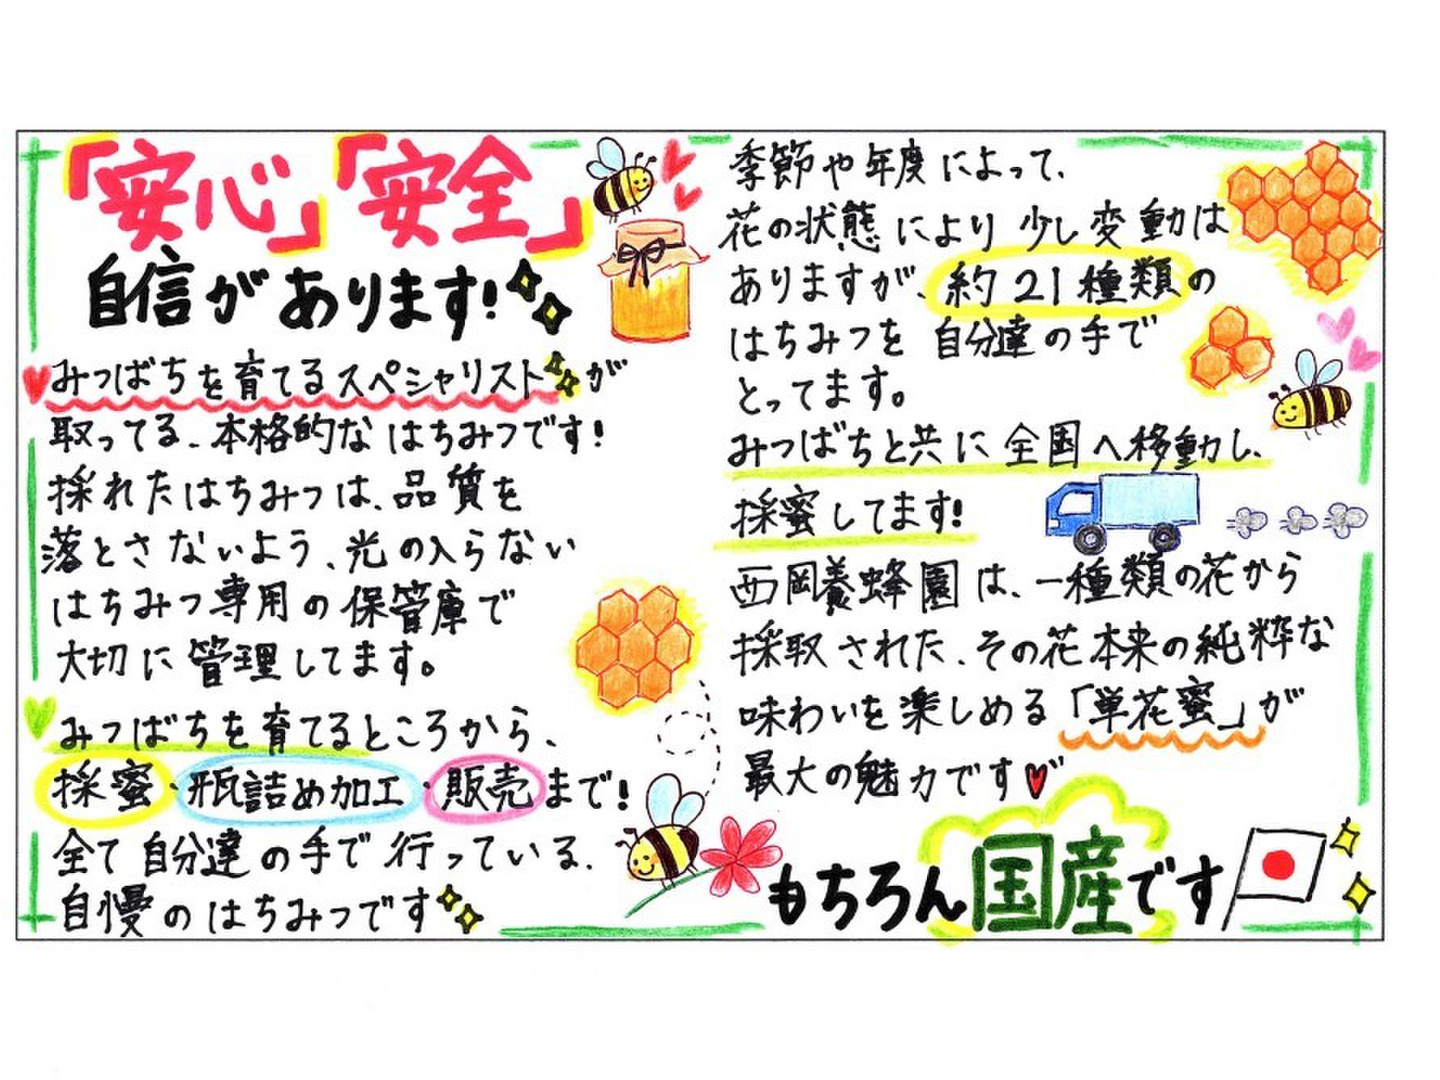 「安心」「安全」
自信があります!
みつばちを育てるスペシャリストが
取ってる、本格的なはちみつです!
採れたはちみつは、品質を
落とさないよう、光の入らない
はちみつ専用の保管庫で
大切に管理してます。
みつばちを育てるところから、
採蜜・瓶詰め加工・販売まで!
全て自分達の手で行っている、
自慢のはちみつです
季節や年度によって、
花の状態により少し変動は
ありますが、約21種類の
はちみつを自分達の手で
とってます。
みつばちと共に全国へ移動し、
採蜜してます!
西岡養蜂園は、一種類の花から
採取された、その花本来の純粋な
味わいを楽しめる「単花蜜」が
最大の魅力です
もちろん国産です